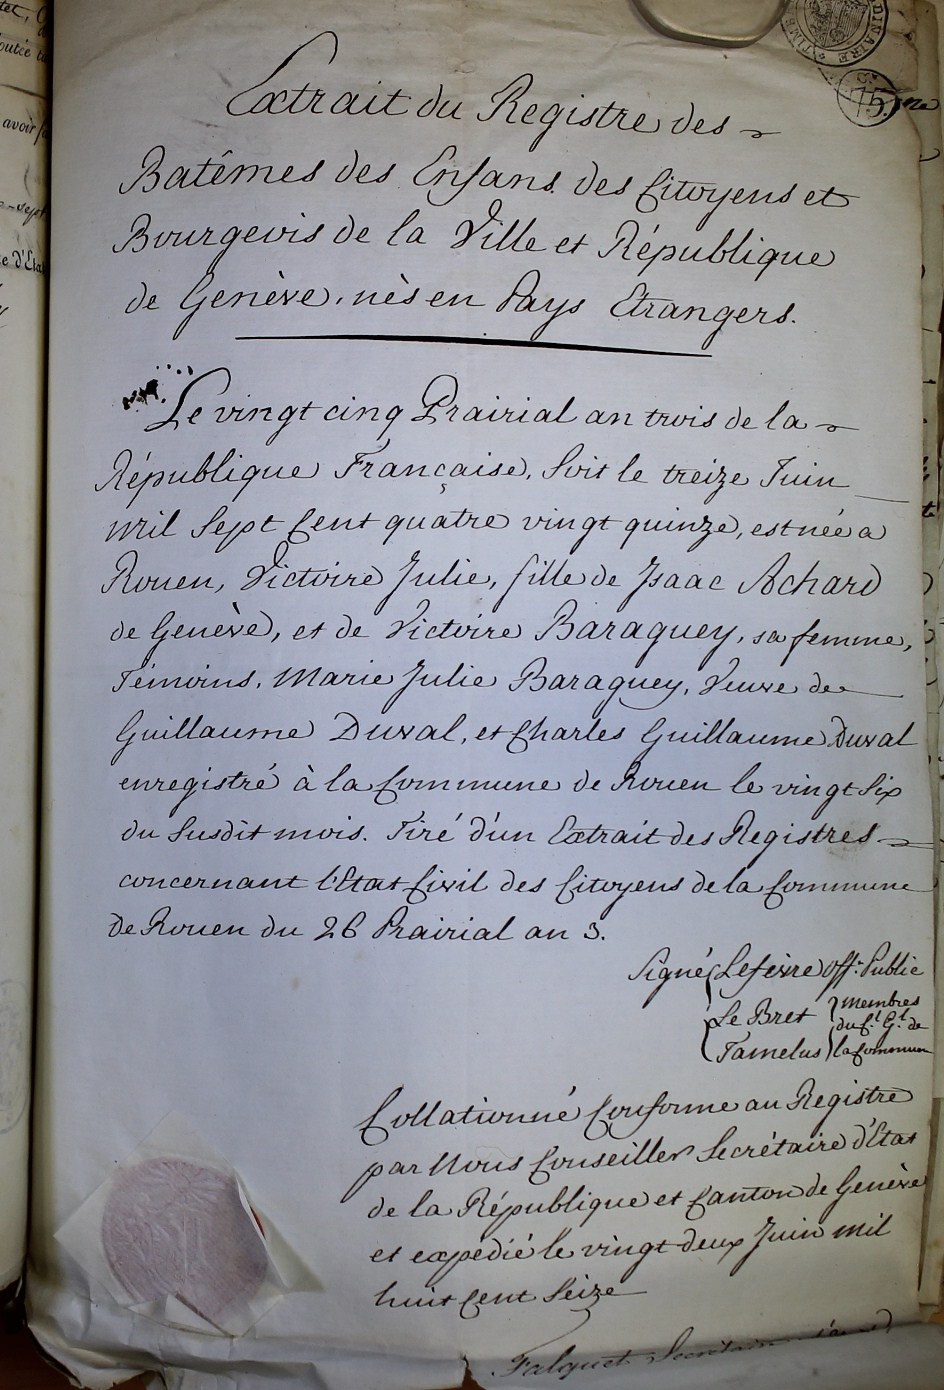 Extrait du Registre des
Batêmes des Enfans des Citoyens et
Bourgeois de la Ville et République
de Genève, nès en Pays Etrangers.
Le vingt cinq Prairial an trois de la
République Française, Soit le treize Juin
mil Sept Cent quatre vingt quinze, est née a
Rouen, Victoire Julie, fille de Isaac Achard
de Genève, et de Victoire Baraguey, sa femme,
Témoins, Marie Julie Baraguey, Veuve de
Guillaume Duval, et Charles Guillaume Duval
enregistré à la Commune de Rouen le vingt Six
du Susdit mois. Tiré d'un Extrait des Registres
concernant l'Etat Civil des Citoyens de la Commune
de Rouen du 26 Prairial an 3.
Signé Lefèvre off. Public
Le Bret membres
du Cl. Gl. de
Tamelus la Commune
Collationné Conforme au Registre
par Nous Conseiller Secrétaire d'Etat
de la République et Canton de Genève
et expedié le vingt deux Juin mil
huit Cent Seize
Falquet Secrétaire
TIMBRE
C. 75
avoir
d'Eta